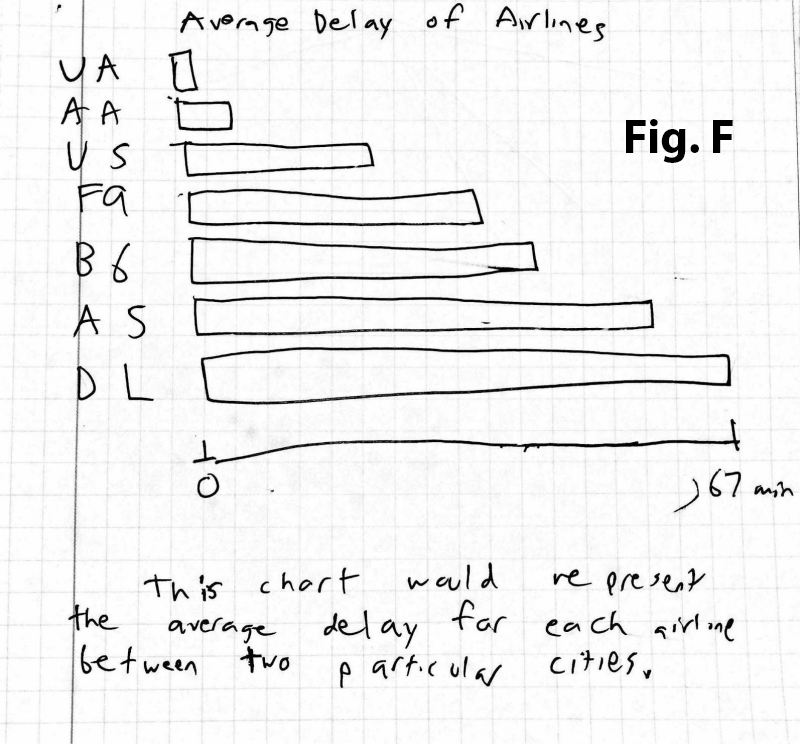 Average Delay of Airlines
UA
AA
Fig. F
US
F9
B6
AS
DL
0
67 min
This chart would represent
the average delay for each airline
between two particular cities.